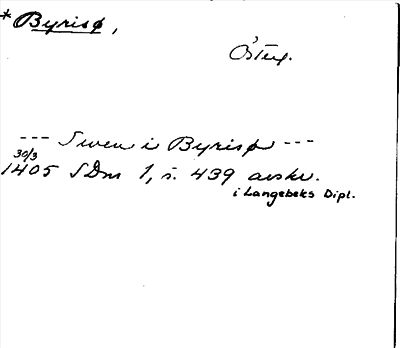 * Byrisø,
Östg.
--- Swen i Byrisø ---
30/3
1405 SDns 1, s. 439 avskr.
i Langebeks Dipl.